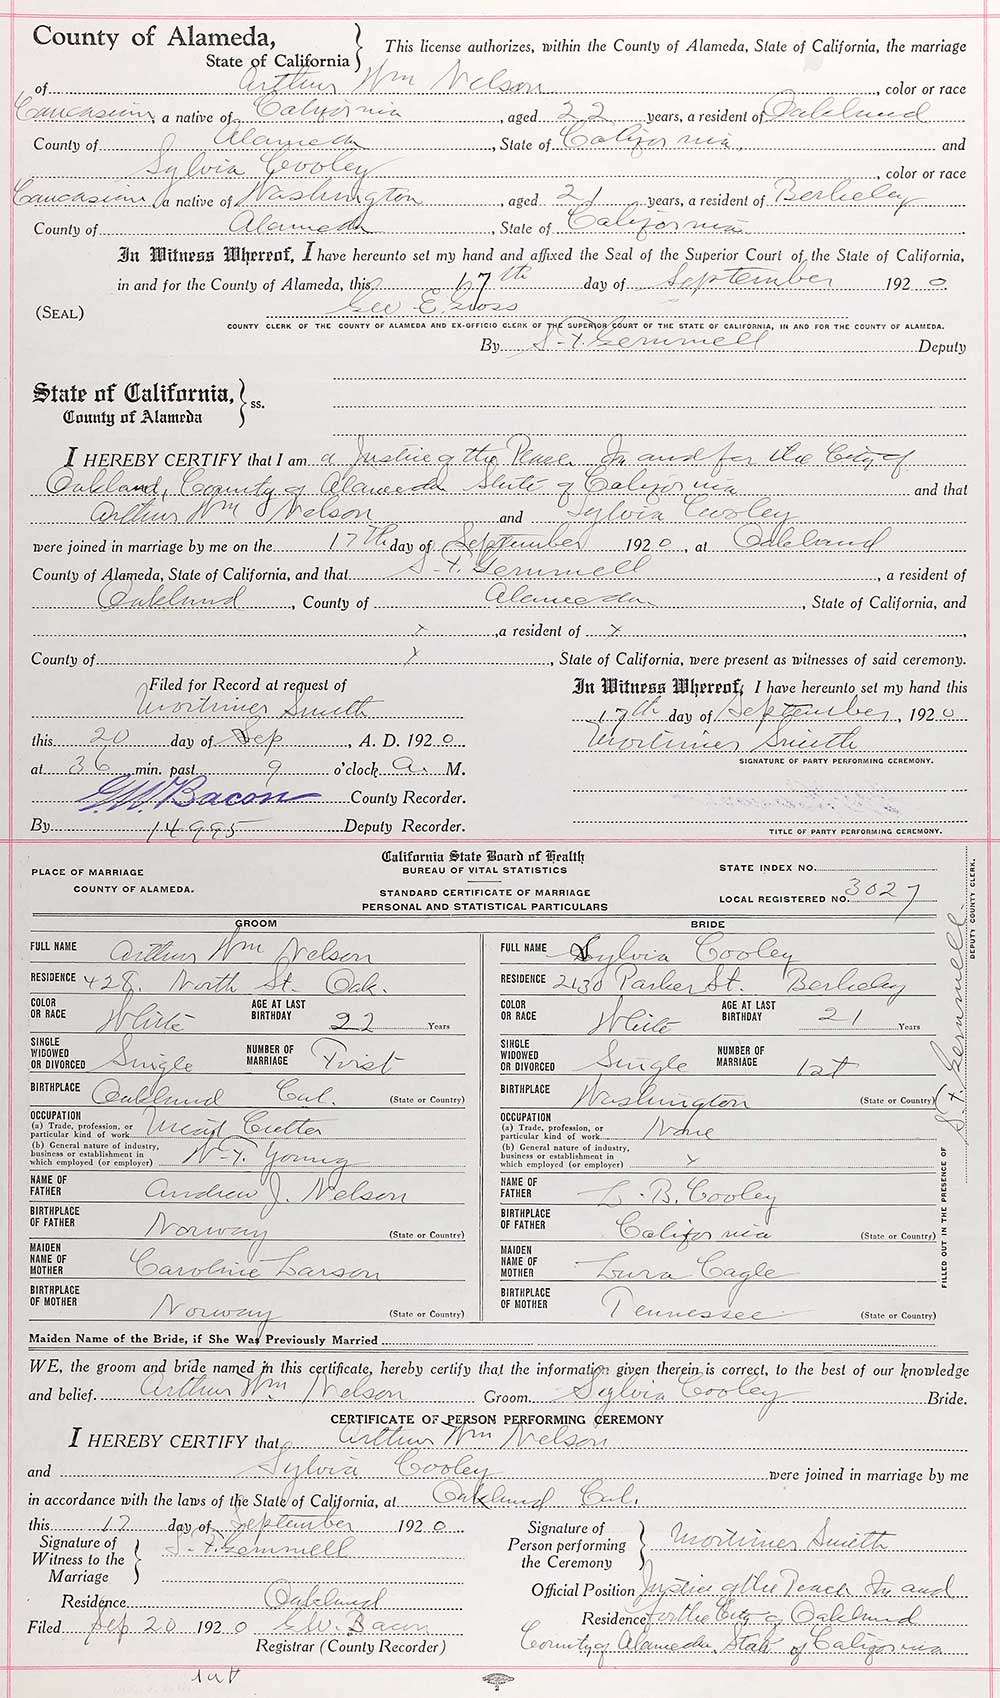 County of Alameda,
State of California
This license authorizes, within the County of Alameda, State of California, the marriage
of Arthur Wm Nelson, color or race
Caucasian, a native of California, aged 22 years, a resident of Oakland
County of Alameda, State of California, and
Sylvia Cooley, color or race
Caucasian, a native of Washington, aged 21 years, a resident of Berkeley
County of Alameda, State of California.
In Witness Whereof, I have hereunto set my hand and affixed the Seal of the Superior Court of the State of California,
in and for the County of Alameda, this 17th day of September 1920.
(SEAL) Geo E. Gross
COUNTY CLERK OF THE COUNTY OF ALAMEDA AND EX-OFFICIO CLERK OF THE SUPERIOR COURT OF THE STATE OF CALIFORNIA, IN AND FOR THE COUNTY OF ALAMEDA.
By S. F. Gemmell Deputy
State of California,
County of Alameda ss.
I HEREBY CERTIFY that I am a Justice of the Peace In and for the City of
Oakland, County of Alameda State of California and that
Arthur Wm Nelson and Sylvia Cooley
were joined in marriage by me on the 17th day of September 1920, at Oakland
County of Alameda, State of California, and that S. F. Gemmell, a resident of
Oakland, County of Alameda, State of California, and
x, a resident of x,
County of x, State of California, were present as witnesses of said ceremony.
Filed for Record at request of
Mortimer Smith
this 20 day of Sep, A. D. 1920.
at 36 min. past 9 o'clock A. M.
G. W. Bacon County Recorder.
By 14995 Deputy Recorder.
In Witness Whereof, I have hereunto set my hand this
17th day of September, 1920
Mortimer Smith
SIGNATURE OF PARTY PERFORMING CEREMONY.
TITLE OF PARTY PERFORMING CEREMONY.
PLACE OF MARRIAGE
COUNTY OF ALAMEDA.
California State Board of Health
BUREAU OF VITAL STATISTICS
STANDARD CERTIFICATE OF MARRIAGE
PERSONAL AND STATISTICAL PARTICULARS
STATE INDEX NO.
LOCAL REGISTERED NO. 3027
GROOM
FULL NAME Arthur Wm Nelson
RESIDENCE 428. North St. Oak.
COLOR OR RACE White AGE AT LAST BIRTHDAY 22 Years
SINGLE WIDOWED OR DIVORCED Single NUMBER OF MARRIAGE First
BIRTHPLACE Oakland Cal. (State or Country)
OCCUPATION
(a) Trade, profession, or particular kind of work Meat Cutter
(b) General nature of industry, business or establishment in which employed (or employer) W. F. Young
NAME OF FATHER Andrew J. Nelson
BIRTHPLACE OF FATHER Norway (State or Country)
MAIDEN NAME OF MOTHER Caroline Larson
BIRTHPLACE OF MOTHER Norway (State or Country)
BRIDE
FULL NAME Sylvia Cooley
RESIDENCE 2130 Parker St. Berkeley
COLOR OR RACE White AGE AT LAST BIRTHDAY 21 Years
SINGLE WIDOWED OR DIVORCED Single NUMBER OF MARRIAGE 1st
BIRTHPLACE Washington (State or Country)
OCCUPATION
(a) Trade, profession, or particular kind of work None
(b) General nature of industry, business or establishment in which employed (or employer) x
NAME OF FATHER L. B. Cooley
BIRTHPLACE OF FATHER California (State or Country)
MAIDEN NAME OF MOTHER Lura Cagle
BIRTHPLACE OF MOTHER Tennessee (State or Country)
FILLED OUT IN THE PRESENCE OF S. F. Gemmell DEPUTY COUNTY CLERK.
Maiden Name of the Bride, if She Was Previously Married
WE, the groom and bride named in this certificate, hereby certify that the information given therein is correct, to the best of our knowledge
and belief. Arthur Wm Nelson Groom. Sylvia Cooley Bride.
CERTIFICATE OF PERSON PERFORMING CEREMONY
I HEREBY CERTIFY that Arthur Wm Nelson
and Sylvia Cooley were joined in marriage by me
in accordance with the laws of the State of California, at Oakland Cal.
this 17 day of September 1920.
Signature of Witness to the Marriage S. F. Gemmell
Residence Oakland
Filed Sep 20 1920 G. W. Bacon
Registrar (County Recorder)
Signature of Person performing the Ceremony Mortimer Smith
Official Position Justice of the Peace In and
Residence for the City of Oakland
County of Alameda, State of California